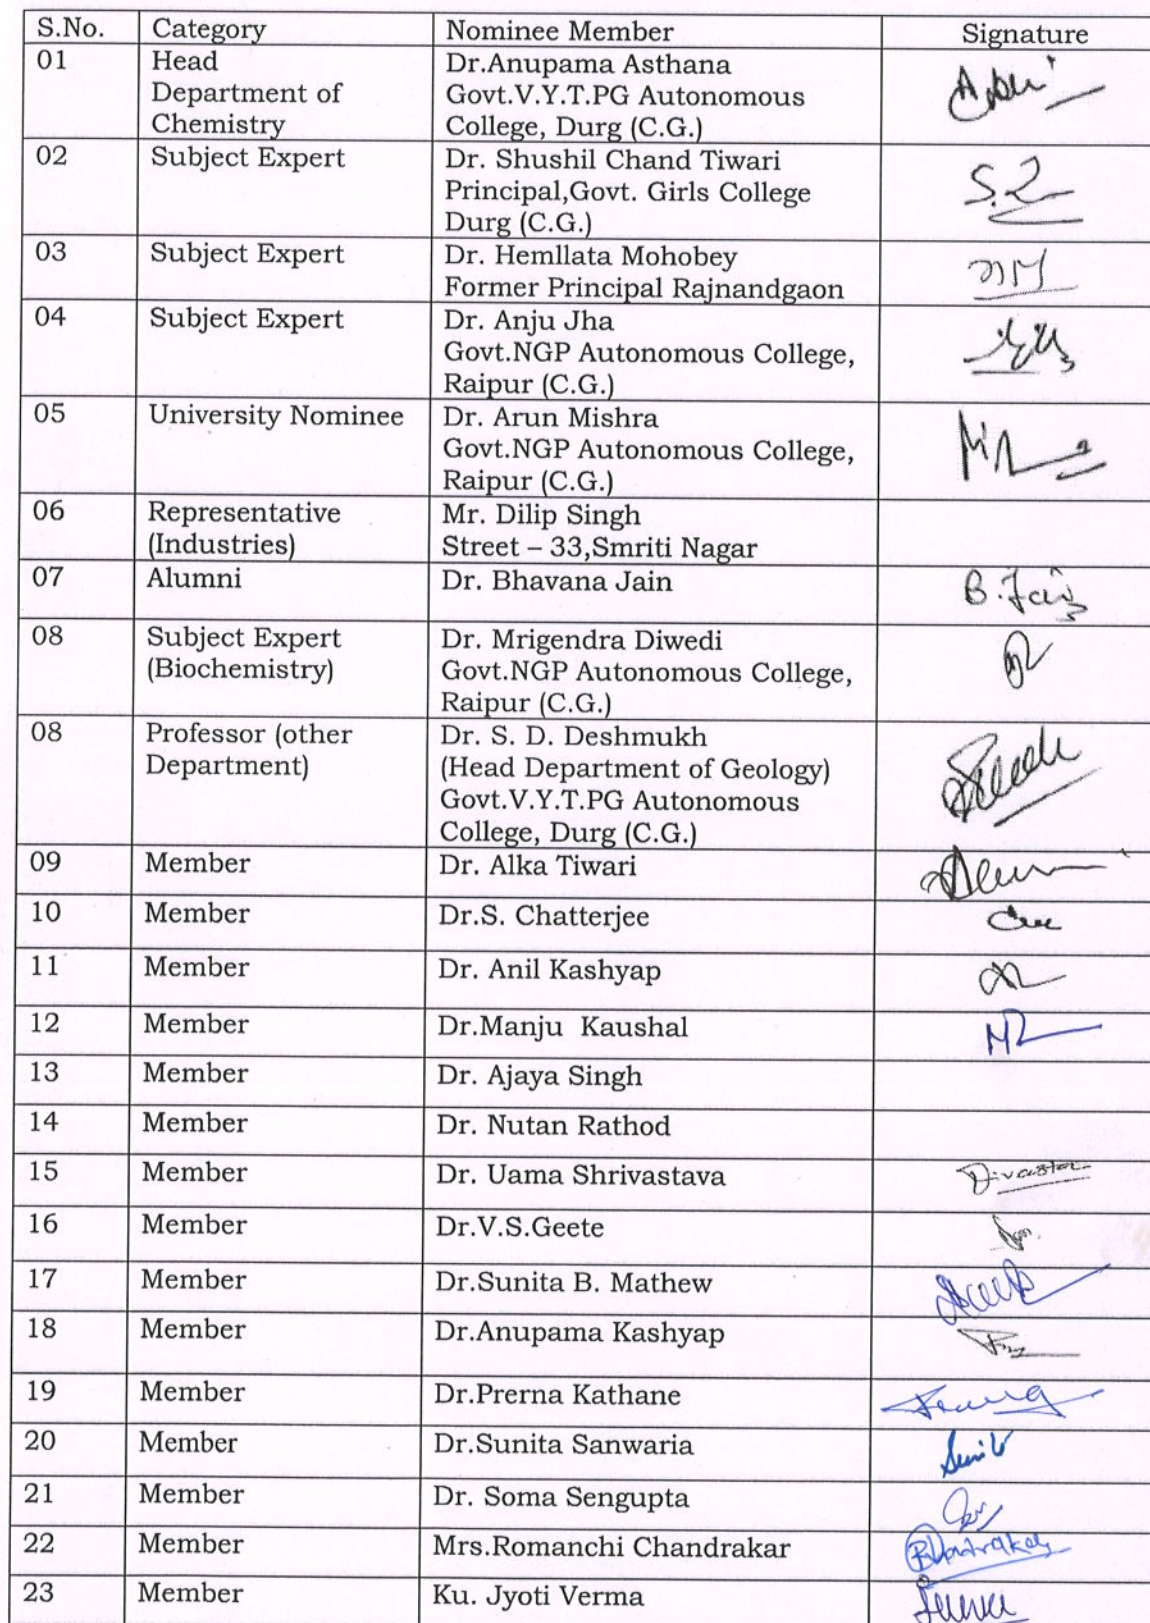 S.No. Category Nominee Member Signature
01 Head Dr.Anupama Asthana
Department of Govt.V.Y.T.PG Autonomous
Chemistry College, Durg (C.G.)
02 Subject Expert Dr. Shushil Chand Tiwari
Principal,Govt. Girls College
Durg (C.G.)
03 Subject Expert Dr. Hemllata Mohobey
Former Principal Rajnandgaon
04 Subject Expert Dr. Anju Jha
Govt.NGP Autonomous College,
Raipur (C.G.)
05 University Nominee Dr. Arun Mishra
Govt.NGP Autonomous College,
Raipur (C.G.)
06 Representative Mr. Dilip Singh
(Industries) Street – 33,Smriti Nagar
07 Alumni Dr. Bhavana Jain B.Jain
08 Subject Expert Dr. Mrigendra Diwedi
(Biochemistry) Govt.NGP Autonomous College,
Raipur (C.G.)
08 Professor (other Dr. S. D. Deshmukh
Department) (Head Department of Geology)
Govt.V.Y.T.PG Autonomous
College, Durg (C.G.)
09 Member Dr. Alka Tiwari
10 Member Dr.S. Chatterjee
11 Member Dr. Anil Kashyap
12 Member Dr.Manju Kaushal
13 Member Dr. Ajaya Singh
14 Member Dr. Nutan Rathod
15 Member Dr. Uama Shrivastava
16 Member Dr.V.S.Geete
17 Member Dr.Sunita B. Mathew
18 Member Dr.Anupama Kashyap
19 Member Dr.Prerna Kathane
20 Member Dr.Sunita Sanwaria
21 Member Dr. Soma Sengupta
22 Member Mrs.Romanchi Chandrakar
23 Member Ku. Jyoti Verma